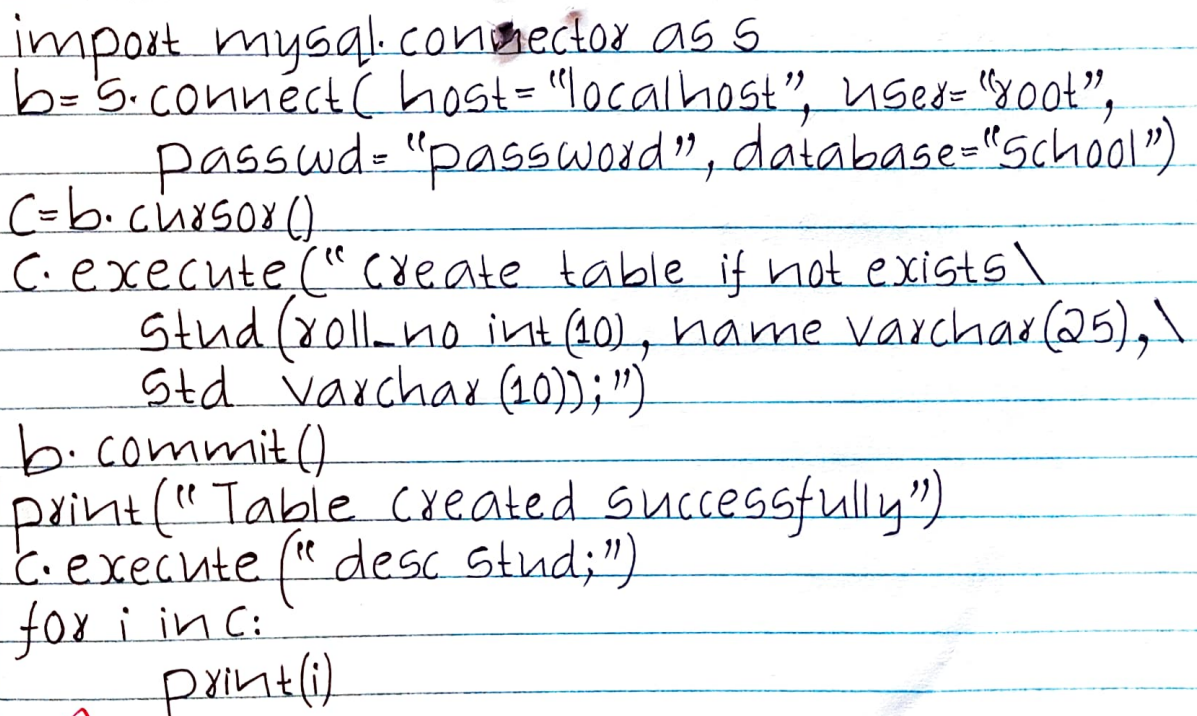 import mysql.connector as s
b= s.connect( host= "localhost", user= "root",
passwd= "password", database="School")
C=b.cursor()
C.execute(" create table if not exists \
Stud (roll_no int (10), name varchar(25), \
Std varchar (10));")
b.commit()
print(" Table created successfully")
C.execute (" desc Stud;")
for i in C:
print(i)